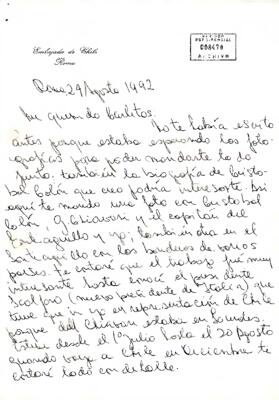 Embajada de Chile
Roma
PERIODO
PRESIDENCIAL
008476
ARCHIVO
Roma 29 Agosto 1992
Mi querido Carlitos:
No te había escrito
antes porque estaba esperando las foto-
grafías para poder mandarte todo
junto. También la biografía de Cristó-
bal Colón que creo podría interesarte. Asi
aquí te mando una foto con Cristobal
Colón, G. Chiavari y el capitán del
y yo; también en
con las banderas de varios
paises. Te contaré que el trabajo fué muy
interesante hasta conocí el presidente
Scalfaro (nuevo presidente de Italia) que
tuve que ir yo en representación de Chile
porque del Chiavari estaba en Londres.
desde el 1º Julio hasta el 20 Agosto
cuando vaya a Chile en Diciembre te
contaré todo con detalle.